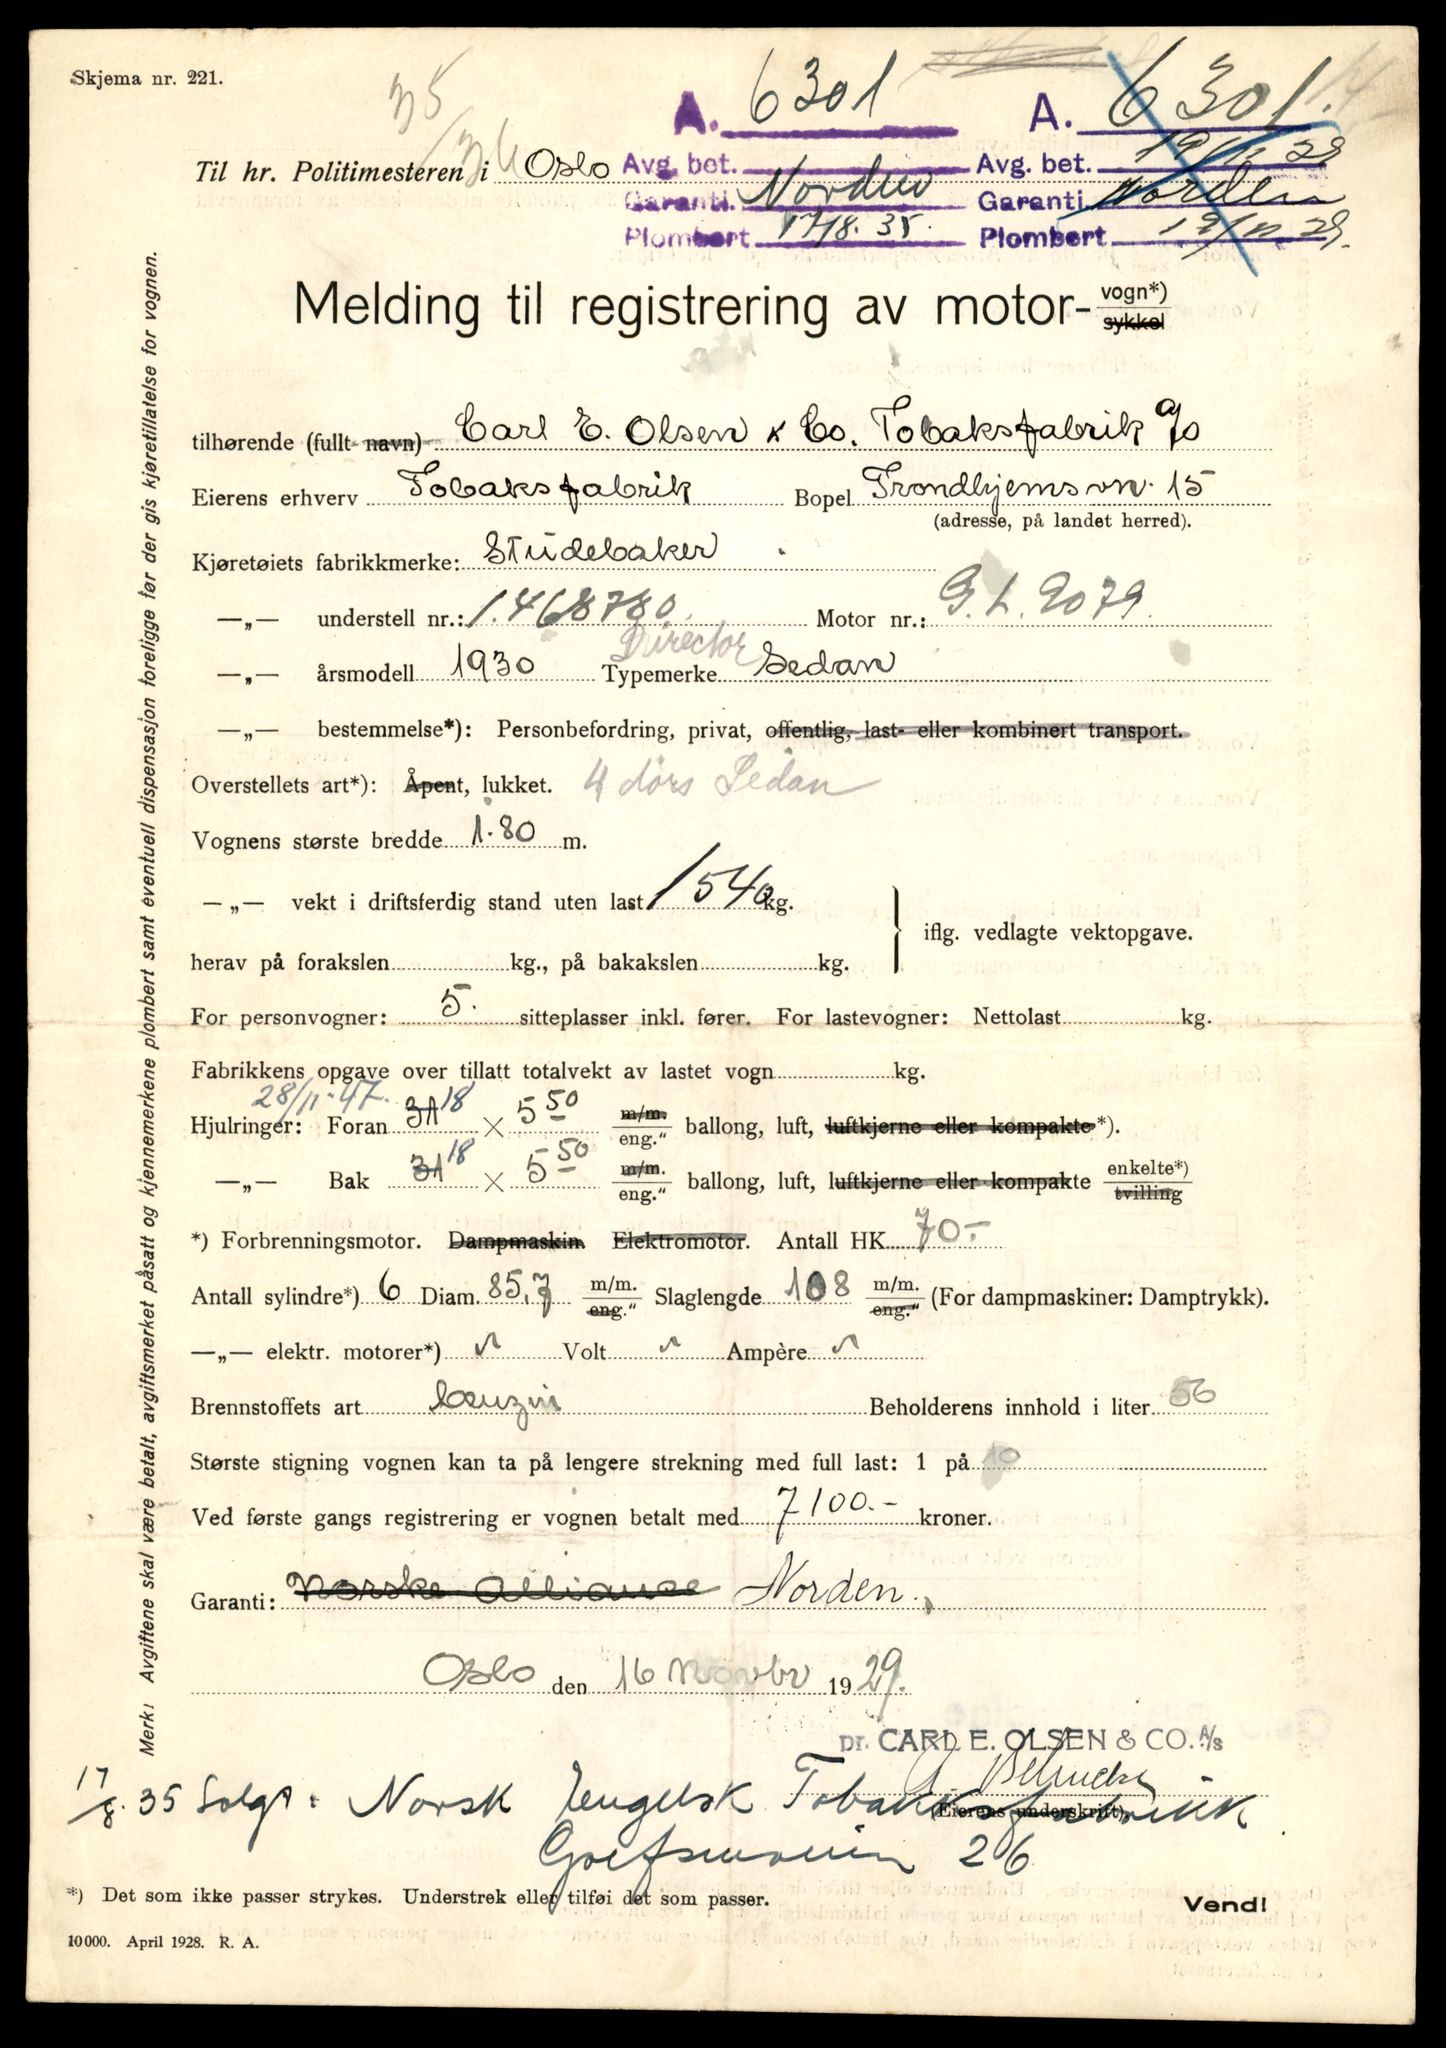 Skjema nr. 221.
35/36
A. 6301 A. 6301.
Avg. bet. Avg. bet. 19/11 29
Til hr. Politimesteren i Oslo
Garanti. Norden Garanti Norden
Plombert 17/8. 35. Plombert 19/11 29.
Melding til registrering av motor- vogn*)
sykkel
tilhørende (fullt navn) Carl E. Olsen & Co. Tobaksfabrik a/s
Eierens erhverv Tobaksfabrik Bopel Trondhjemsvn. 15
(adresse, på landet herred).
Kjøretøiets fabrikkmerke: Studebaker
—„— understell nr.: 1.468780. Motor nr.: G. L. 2079.
Director
—„— årsmodell 1930 Typemerke Sedan
—„— bestemmelse*): Personbefordring, privat, offentlig, last- eller kombinert transport.
Overstellets art*): Åpent, lukket. 4 dørs Sedan
Vognens største bredde 1.80 m.
—„— vekt i driftsferdig stand uten last 1540 kg.
iflg. vedlagte vektopgave.
herav på forakslen kg., på bakakslen kg.
For personvogner: 5. sitteplasser inkl. fører. For lastevogner: Nettolast kg.
Fabrikkens opgave over tillatt totalvekt av lastet vogn kg.
28/11-47.
Hjulringer: Foran 31 18 × 5 50 m/m. eng.“ ballong, luft, luftkjerne eller kompakte*).
—„— Bak 31 18 × 5 50 m/m. eng.“ ballong, luft, luftkjerne eller kompakte enkelte*) tvilling
*) Forbrenningsmotor. Dampmaskin. Elektromotor. Antall HK. 70.-
Antall sylindre*) 6 Diam. 85,7 m/m. eng.“ Slaglengde 108 m/m. eng.“ (For dampmaskiner: Damptrykk).
—„— elektr. motorer*) Volt Ampère
Brennstoffets art benzin Beholderens innhold i liter 56
Største stigning vognen kan ta på lengere strekning med full last: 1 på 10
Ved første gangs registrering er vognen betalt med 7100.- kroner.
Garanti: Norske Alliance Norden.
Oslo den 16 Novbr 1929.
pr. CARL E. OLSEN & CO. A/S
(Eierens underskrift).
17/8. 35 Solgt: Norsk Engelsk Tobakksfabrikk
Grefsenveien 26
*) Det som ikke passer strykes. Understrek eller tilføi det som passer.
Vend!
10000. April 1928. R. A.
Merk! Avgiftene skal være betalt, avgiftsmerket påsatt og kjennemerkene plombert samt eventuell dispensasjon foreligge før der gis kjøretillatelse for vognen.